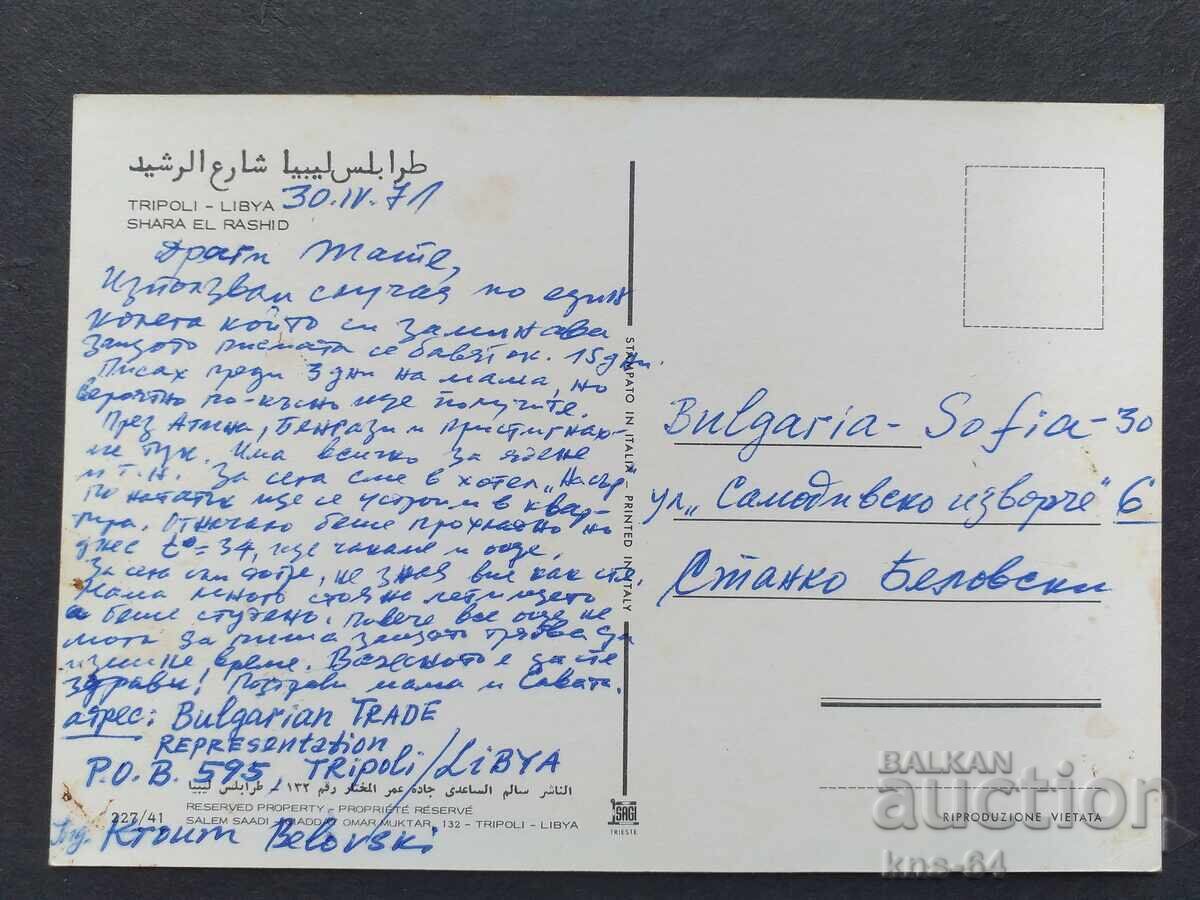 طرابلس ليبيا شارع الرشيد
TRIPOLI - LIBYA 30.IV.71
SHARA EL RASHID
Драги Тате,
Използвам случая по един
колега който си заминава
защото писмата се бавят ок. 15 дни.
Писах преди 3 дни на мама, но
вероятно по-късно ще получите.
През Атина, Бенгази и пристигнах-
ме тук. Има всичко за ядене
и т.н. За сега сме в хотел „Насър
По нататък ще се устроим в квар-
тира. Отначало беше прохладно но
днес t°=34, ще чакаме и още.
За сега съм добре, не зная вие как сте.
Мама много стоя на летището
а беше студено. Повече все още не
мога да пиша защото трябва да
измине време. Важното е да сте
здрави! Поздрави мама и
адрес: Bulgarian TRADE
REPRESENTATION
P.O.B. 595, TRIPOLI/LIBYA
الناشر سالم الساعدي جادة عمر المختار رقم ١٣٢ - طرابلس ليبيا
RESERVED PROPERTY - PROPRIÉTÉ RÉSERVÉ
227/41 SALEM SAADI - GIADDAT OMAR MUKTAR, 132 - TRIPOLI - LIBYA
Ing. Kroum Belovski
STAMPATO IN ITALIA - PRINTED IN ITALY
SAGI
TRIESTE
Bulgaria - Sofia - 30
ул. „Самодивско изворче" 6
Станко Беловски
RIPRODUZIONE VIETATA
BALKAN
auction
kns-64